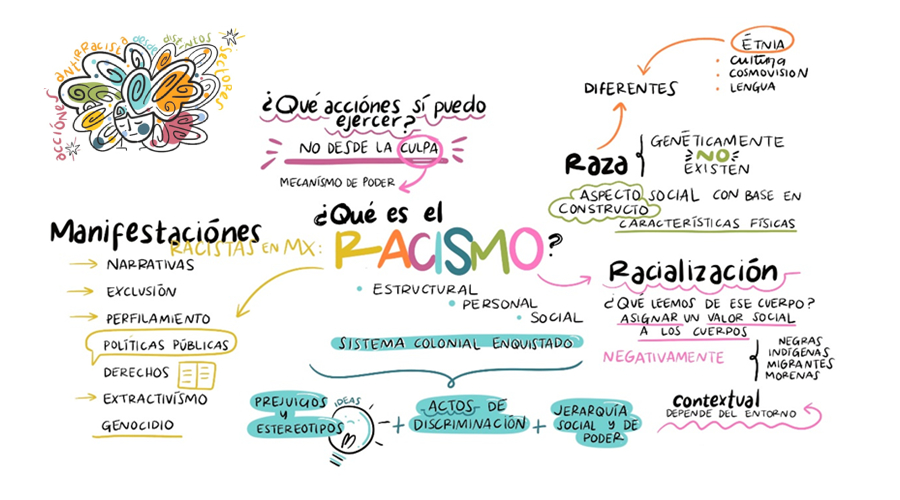 acciónes antirracista desde distintos sectores
¿Qué acciónes sí puedo
ejercer?
NO DESDE LA CULPA
MECANÍSMO DE PODER
ÉTNIA
• CULTURA
• COSMOVISIÓN
• LENGUA
DIFERENTES
Raza
GENÉTICAMENTE
NO
EXISTEN
ASPECTO SOCIAL CON BASE EN
CONSTRUCTO
CARACTERÍSTICAS FÍSICAS
¿Qué es el
RACISMO?
• ESTRUCTURAL
• PERSONAL
• SOCIAL
SISTEMA COLONIAL ENQUISTADO
PREJUICIOS
Y
ESTEREOTIPOS
IDEAS
+
ACTOS DE
DISCRIMINACIÓN
+
JERARQUÍA
SOCIAL Y DE
PODER
Manifestaciónes
RACISTAS EN MX:
→ NARRATIVAS
→ EXCLUSIÓN
→ PERFILAMIENTO
POLÍTICAS PÚBLICAS
DERECHOS
→ EXTRACTIVÍSMO
GENOCIDIO
Racialización
¿QUÉ LEEMOS DE ESE CUERPO?
ASIGNAR UN VALOR SOCIAL
A LOS CUERPOS
NEGATIVAMENTE
NEGRAS
INDÍGENAS
MIGRANTES
MORENAS
contextual
DEPENDE DEL ENTORNO